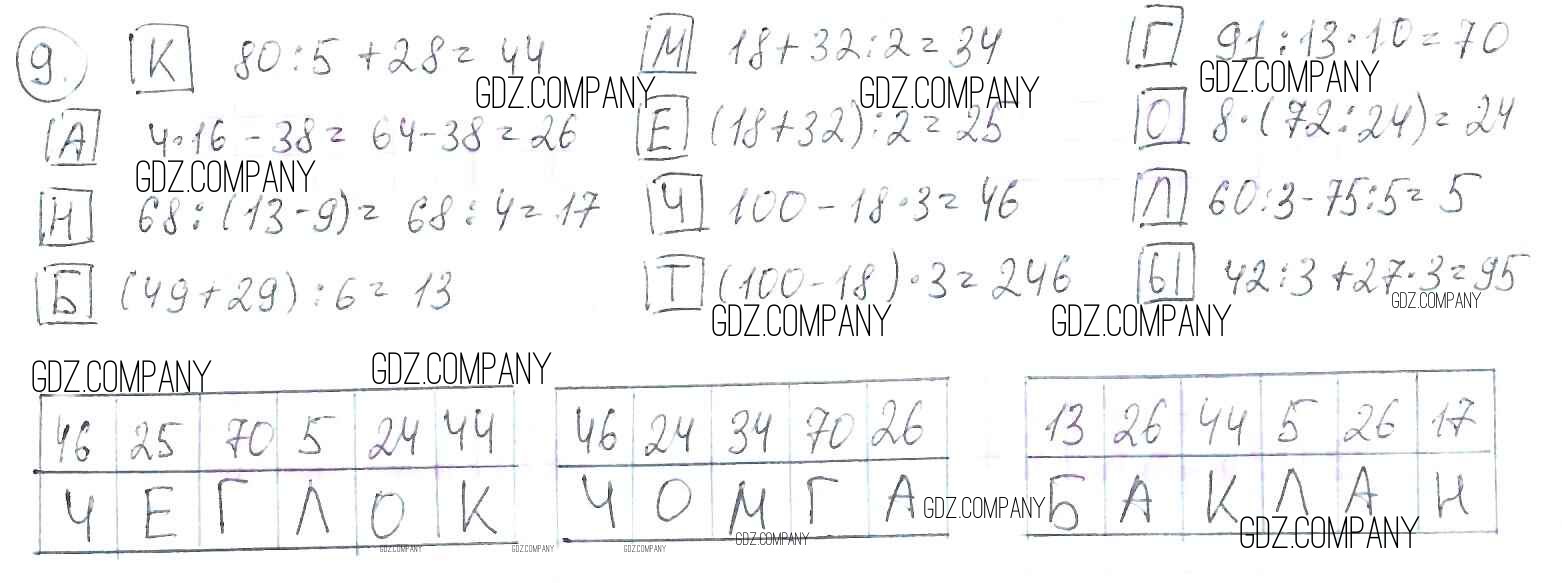 9. К 80:5+28=44 М 18+32:2=34 Г 91:13·10=70
GDZ.COMPANY GDZ.COMPANY GDZ.COMPANY
А 4·16-38=64-38=26 Е (18+32):2=25 О 8·(72:24)=24
GDZ.COMPANY
Н 68:(13-9)=68:4=17 Ч 100-18·3=46 Л 60:3-75:5=5
Б (49+29):6=13 Т (100-18)·3=246 Ы 42:3+27·3=95
GDZ.COMPANY GDZ.COMPANY GDZ.COMPANY
GDZ.COMPANY GDZ.COMPANY
46 25 70 5 24 44 46 24 34 70 26 13 26 44 5 26 17
Ч Е Г Л О К Ч О М Г А Б А К Л А Н
GDZ.COMPANY GDZ.COMPANY
GDZ.COMPANY GDZ.COMPANY GDZ.COMPANY GDZ.COMPANY